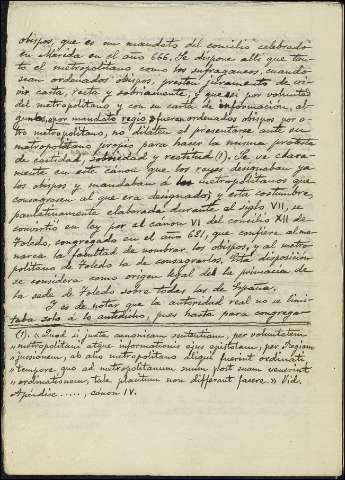 obispos, que es un mandato del concilio celebrado
en Mérida en el año 666. Se dispone allí que tan-
to el metropolitano como los sufraganeos, cuando
sean ordenados obispos, presten juramento de vi-
vir casta, recta y sobriamente, y que si por voluntad
del metropolitano y con su carta de información, al-
gunos, o por mandato regio fueren ordenados obispos por o-
tro metropolitano, no dilaten el presentarse ante su
metropolitano propio para hacer la misma protesta
de castidad, sobriedad y rectitud (1). Se ve clara-
mente en este cánon que los reyes designaban ya
los obispos y mandaban á los metropolitanos que
consagrasen al que era designado; y esta costumbre,
paulatinamente elaborada durante el siglo VII, se
convirtió en ley por el cánon VI del concilio XII de
Toledo, congregado en el año 681, que confiere al mo-
narca la facultad de nombrar los obispos, y al metro-
politano de Toledo la de consagrarlos. Esta disposición
se considera como origen legal de la primacia de
la sede de Toledo sobre todas las de España.
Y es de notar que la autoridad real no se limi-
taba solo á lo antedicho, pues hasta para congrega-
(1). « Quod si juxta canonicam sententiam, per voluntatem
» metropolitani atque informationis ejus epistolam, per Regiam
jussionem, ab alio metropolitano aliqui fuerint ordinati
» tempore quo ad metropolitanum suum post suam venerint
» ordinationem, tale placitum non differant facere.» Vid.
Apéndice ....., cánon IV.